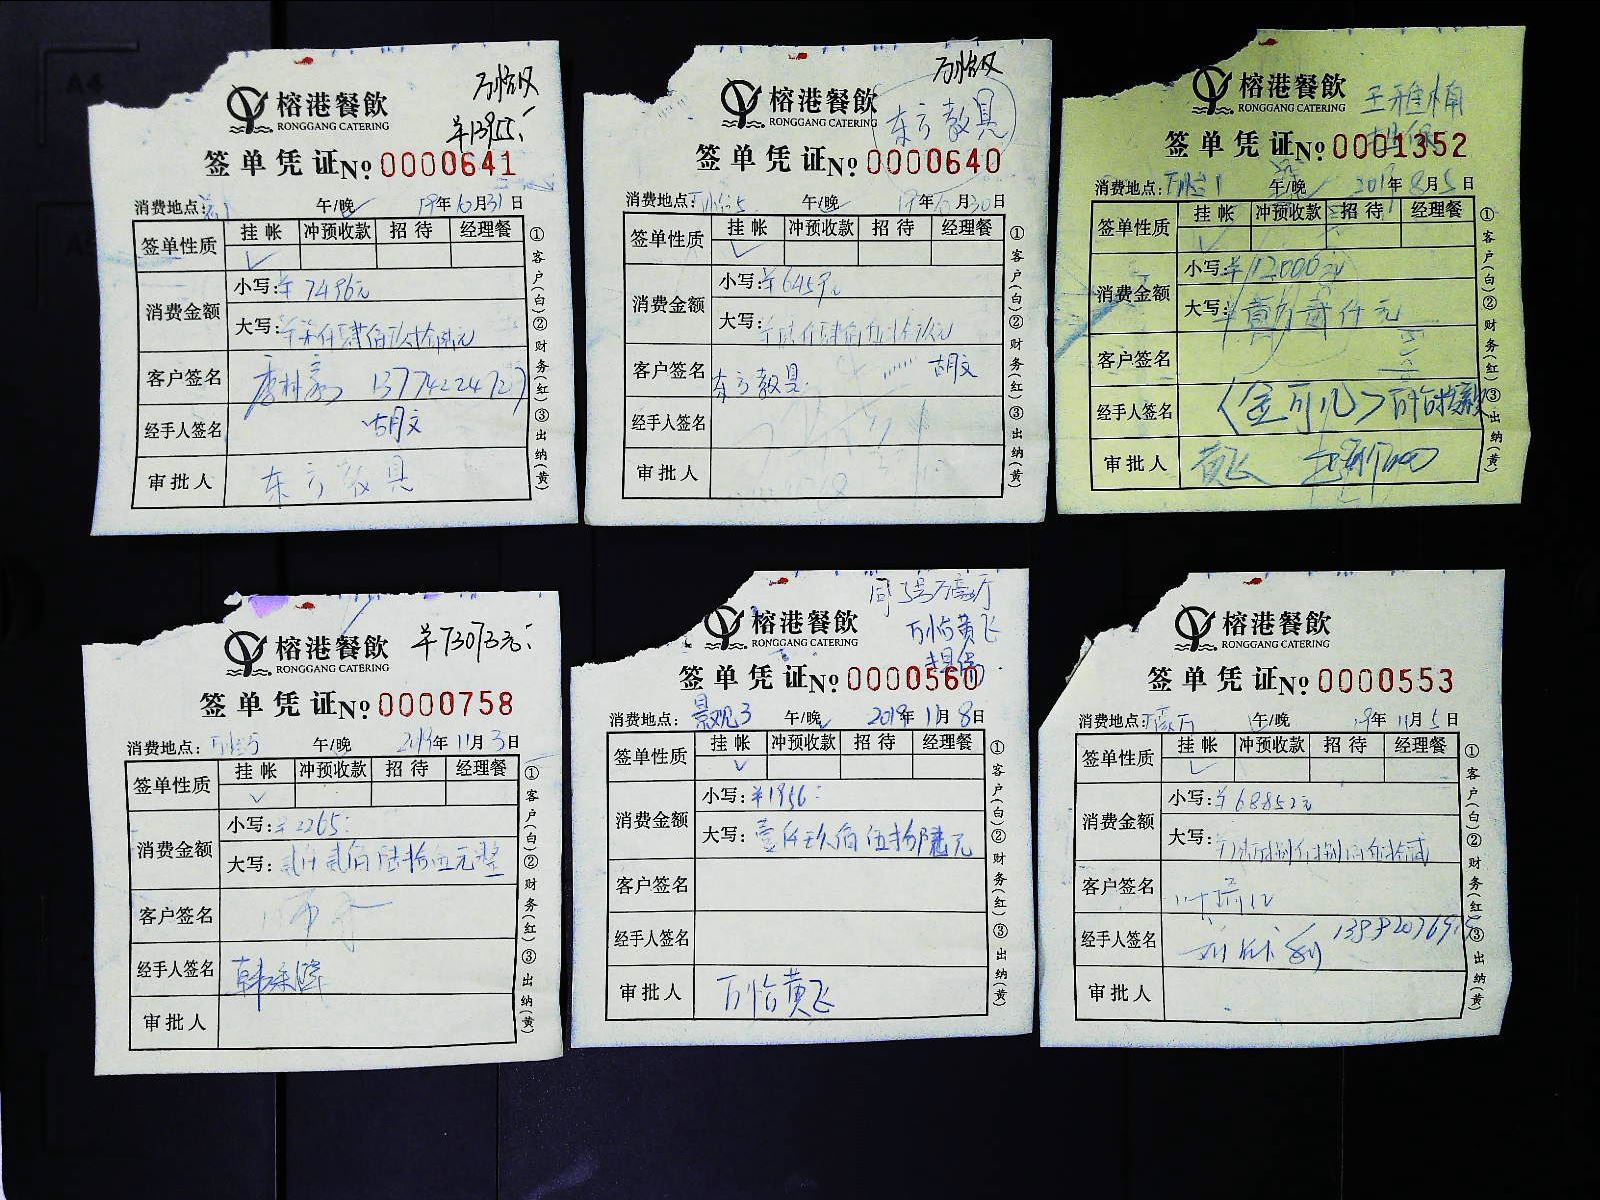 榕港餐飲
RONGGANG CATERING
万怡汉
¥13955.-
签单凭证 No 0000641
消费地点: 午/晚 19年10月31日
签单性质 挂帐 冲预收款 招待 经理餐
消费金额 小写:¥7496元
大写:¥柒仟肆佰玖拾陆元
客户签名 13774224727
经手人签名 胡文
审批人 东方教具
①客户(白)②财务(红)③出纳(黄)
榕港餐飲
RONGGANG CATERING
万怡汉
东方教具
签单凭证 No 0000640
消费地点: 午/晚 19年10月30日
签单性质 挂帐 冲预收款 招待 经理餐
消费金额 小写:¥6459元
大写:¥陆仟肆佰伍拾玖元
客户签名 东方教具 胡文
经手人签名
审批人
①客户(白)②财务(红)③出纳(黄)
榕港餐飲
RONGGANG CATERING
王雅楠
担保
签单凭证 No 0001352
消费地点: 午/晚 2019年8月5日
签单性质 挂帐 冲预收款 招待 经理餐
消费金额 小写:¥12000元
大写:¥壹万贰仟元
客户签名
经手人签名 〈金可儿〉万怡
审批人 黄飞
①客户(白)②财务(红)③出纳(黄)
榕港餐飲
RONGGANG CATERING
¥73073元.-
签单凭证 No 0000758
消费地点: 午/晚 2019年11月3日
签单性质 挂帐 冲预收款 招待 经理餐
消费金额 小写:¥2265.-
大写:贰仟贰佰陆拾伍元整
客户签名
经手人签名
审批人
①客户(白)②财务(红)③出纳(黄)
榕港餐飲
RONGGANG CATERING
同5号万豪厅
万怡黄飞
担保.
签单凭证 No 0000560
消费地点:景观3 午/晚 2019年11月8日
签单性质 挂帐 冲预收款 招待 经理餐
消费金额 小写:¥1956.-
大写:壹仟玖佰伍拾陆元
客户签名
经手人签名
审批人 万怡黄飞
①客户(白)②财务(红)③出纳(黄)
榕港餐飲
RONGGANG CATERING
签单凭证 No 0000553
消费地点: 午/晚 19年11月5日
签单性质 挂帐 冲预收款 招待 经理餐
消费金额 小写:¥68852元
大写:¥陆万捌仟捌佰伍拾贰
客户签名
经手人签名
审批人
①客户(白)②财务(红)③出纳(黄)